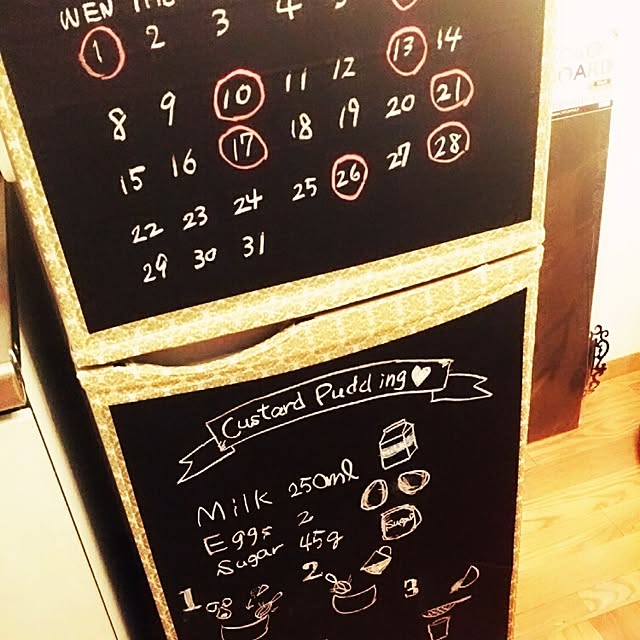 WEN THU
1 2 3 4 5
8 9 10 11 12 13 14
15 16 17 18 19 20 21
22 23 24 25 26 27 28
29 30 31
Custard Pudding
Milk 250ml
Eggs 2
Sugar 45g
Sugar
1 2 3